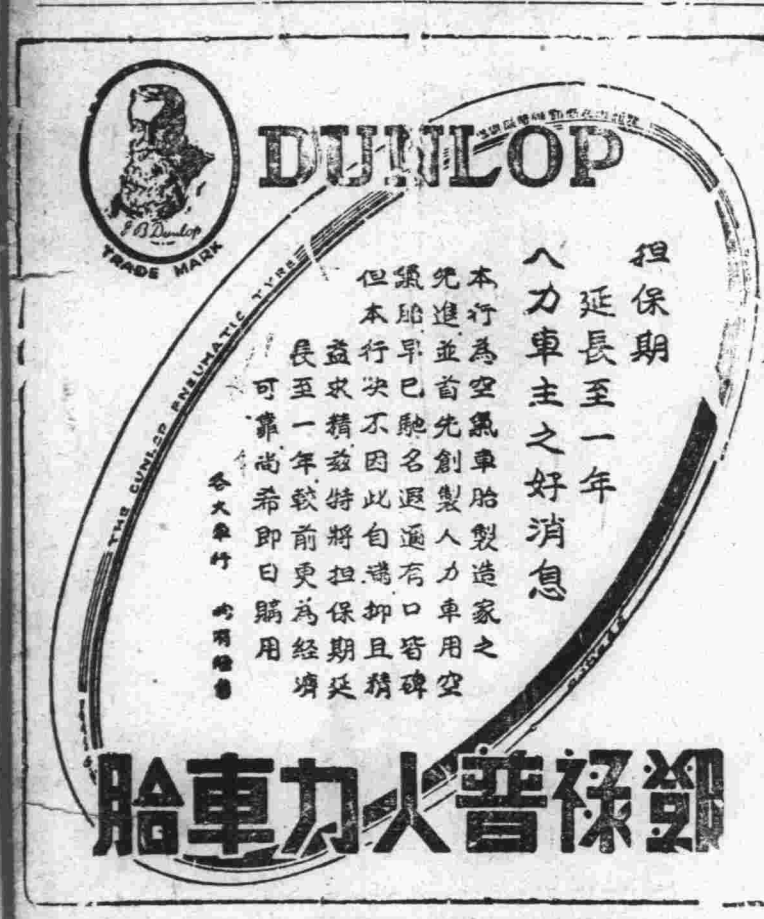 DUNLOP
J B Dunlop
TRADE MARK
THE DUNLOP PNEUMATIC TYRE
担保期
延長至一年
人力車主之好消息
本行為空氣車胎製造家之
先進並首先創製人力車用空
氣胎早已馳名遐邇有口皆碑
但本行决不因此自滿抑且精
益求精兹特將担保期延
長至一年較前更為経濟
可靠尚希即日購用
各大車行 均有經售
鄧祿普人力車胎